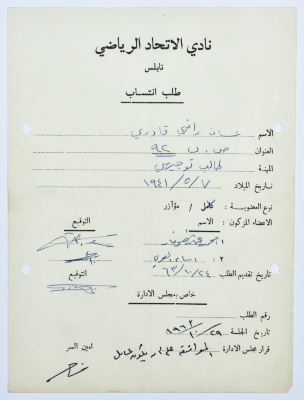 نادي الاتحاد الرياضي
نابلس
طلب انتساب
الاسم غسان راضي قادري
العنوان ص.ب ٩٢
المهنة طالب توجيهي
تاريخ الميلاد ١٩٤١/٥/٧
نوع العضوية: كامل / مؤازر
الاعضاء المزكون: الاسم التوقيع
١:
٢:
تاريخ تقديم الطلب ٦٣/١٠/٢٤ التوقيع
خاص بمجلس الادارة
رقم الطلب
تاريخ الجلسة ١٩٦٣/١٠/٢٩ امين السر
قرار مجلس الادارة الموافقة على ان يكون عامل